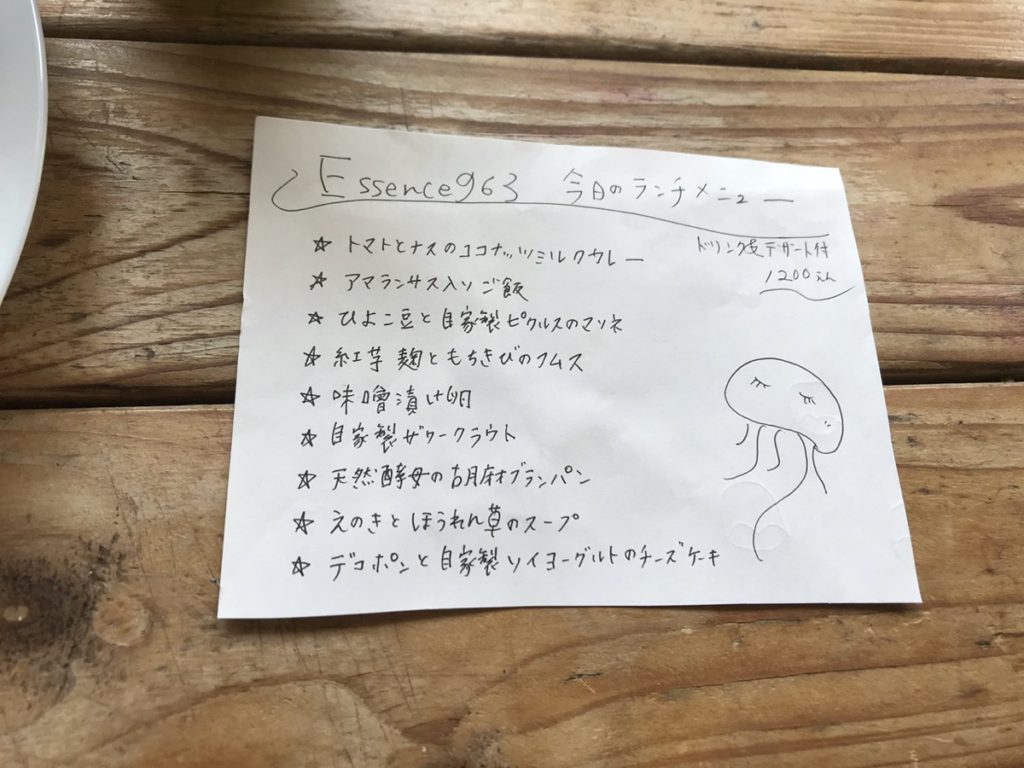 Essence963 今日のランチメニュー
ドリンク及デザート付
1200えん
☆ トマトとナスのココナッツミルクカレー
☆ アマランサス入りご飯
☆ ひよこ豆と自家製ピクルスのマリネ
☆ 紅芋麹ともちきびのフムス
☆ 味噌漬け卵
☆ 自家製ザワークラウト
☆ 天然酵母の胡麻ブランパン
☆ えのきとほうれん草のスープ
☆ デコポンと自家製ソイヨーグルトのチーズケキ